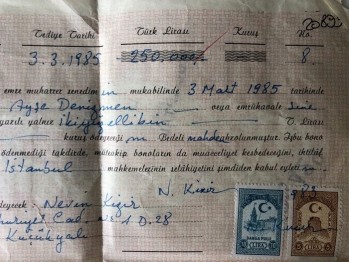 Tediye Tarihi Türk Lirası Kuruş No.
3.3.1985 250.000 8.
emre muharrer senedimin mukabilinde 3 Mart 1985 tarihinde
Ayşe Denizmen veya emrühavale
yazılı yalnız ikiyüzellibin T. Lirası
kuruş ödeyeceğim. Bedeli ahzolunmuştur. İşbu bono
ödenmediği takdirde, müteakip bonoların da muacceliyet kesbedeceğini, ihtilâf
İstanbul mahkemelerinin selâhiyetini şimdiden kabul eylerim
N. Kızır
Neven Kızır
Cad. No 1 D.28
Küçükyalı
DAMGA PULU
LİRA
LİRA